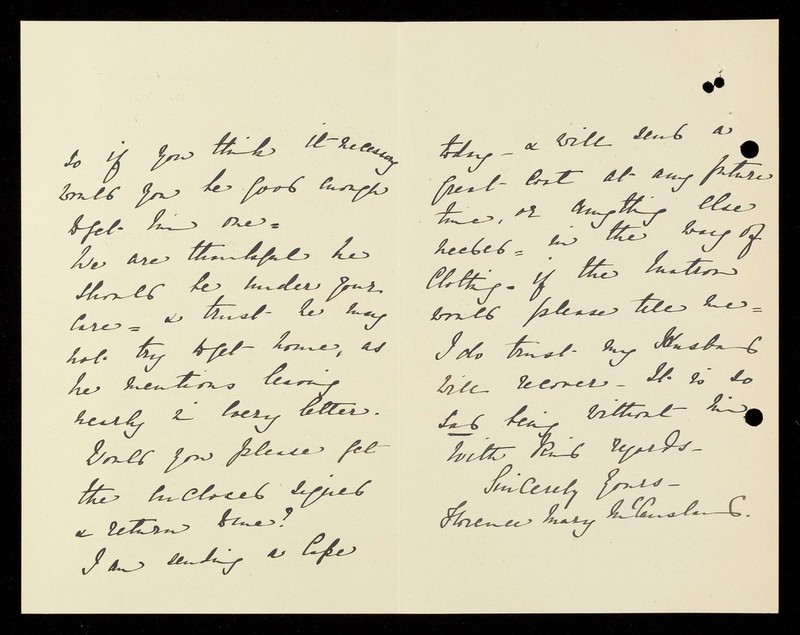 so if you think it necessary
would you be good enough
to get him one =
We are thankful he
should be under your
care = & trust he may
not try to get home, as
he mentions leaving
nearly in every letter.
Would you please get
the enclosed signed
& return to me?
I am sending a Cape
today – & will send a
great coat at any future
time, or anything else
needed = in the way of
Clothing – if the Matron
would please tell me =
I do trust my Husband
will recover – It is so
sad being without him
With kind regards –
Sincerely yours –
Florence Mary McCausland.